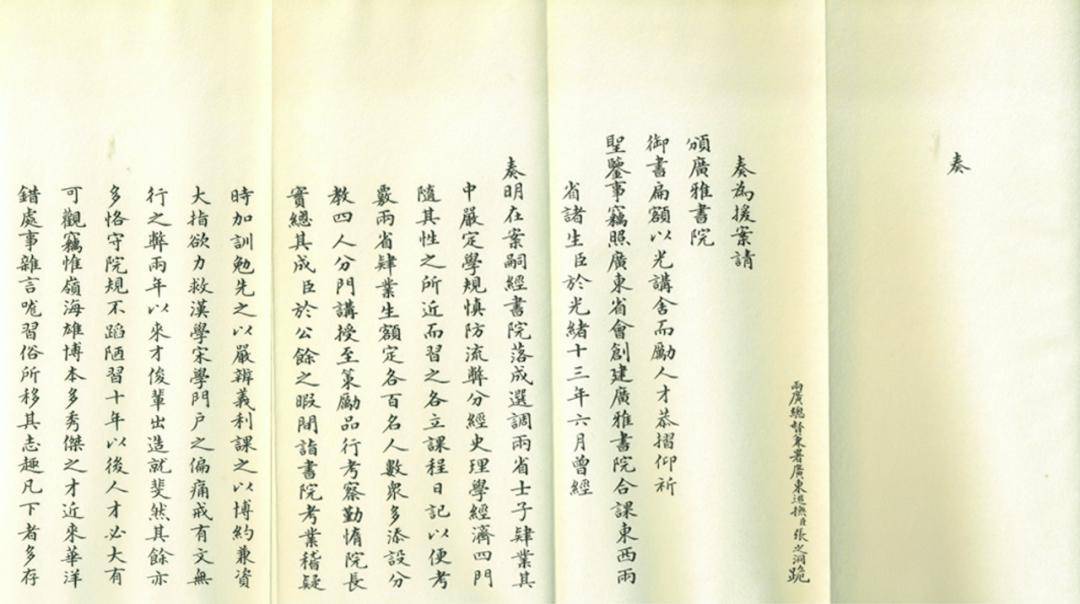 奏
兩廣總督兼署廣東巡撫臣張之洞跪
奏為援案請
頒廣雅書院
御書扁額以光講舍而勵人才恭摺仰祈
聖鑒事竊照廣東省會創建廣雅書院合課東西兩
省諸生臣於光緒十三年六月曾經
奏明在案嗣經書院落成選調兩省士子肄業其
中嚴定學規慎防流弊分經史理學經濟四門
隨其性之所近而習之各立課程日記以便考
覈兩省肄業生額定各百名人數衆多添設分
教四人分門講授至策勵品行考察勤惰院長
實總其成臣於公餘之暇間詣書院考業稽疑
時加訓勉先之以嚴辨義利課之以博約兼資
大指欲力救漢學宋學門戶之偏痛戒有文無
行之弊兩年以來才俊輩出造就斐然其餘亦
多恪守院規不蹈陋習十年以後人才必大有
可觀竊惟嶺海雄博本多秀傑之才近來華洋
錯處事雜言咙習俗所移其志趣凡下者多存